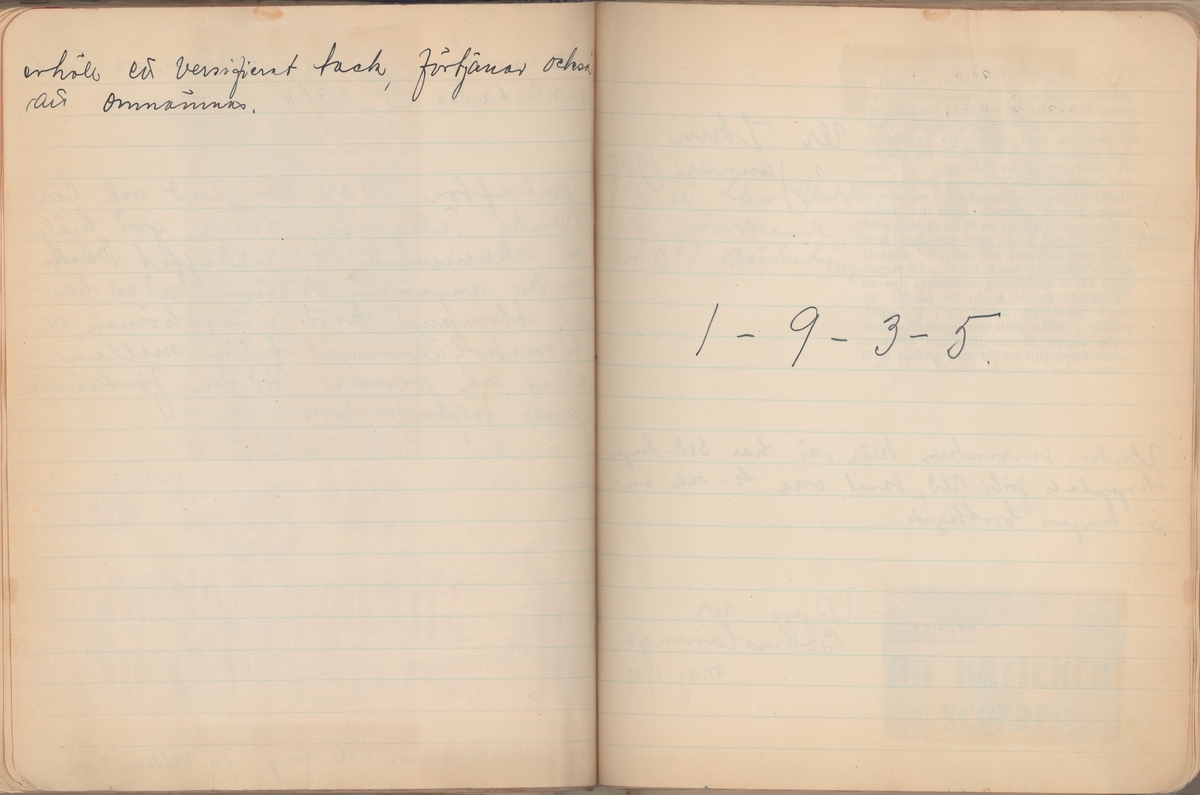 erhöll ett versifierat tack, förtjänar också
att omnämnas.
1 - 9 - 3 - 5.